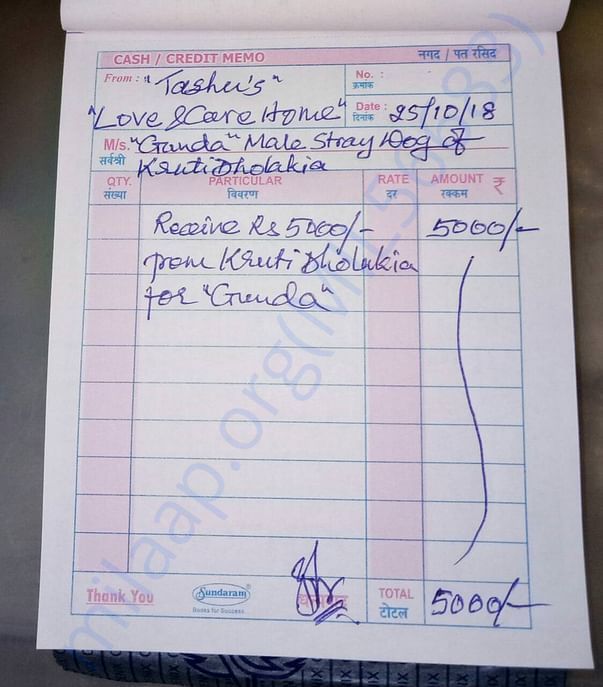 CASH / CREDIT MEMO नगद / पत रसिद
From : "Tashu's"
"Love & Care Home"
No. :
क्रमांक
Date : 25/10/18
दिनांक
M/s. "Gunda" Male Stray Dog of
सर्वश्री Kruti Dholakia
QTY. PARTICULAR RATE AMOUNT ₹
संख्या विवरण दर रक्कम
Receive Rs 5000/- 5000/-
from Kruti Dholakia
for "Gunda"
Thank You Sundaram धन्यवाद TOTAL 5000/-
Books for Success टोटल